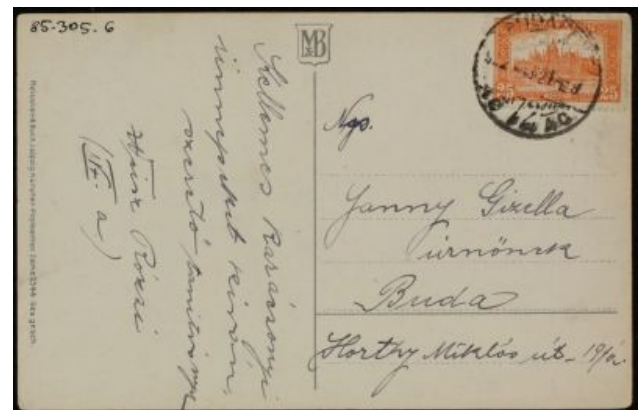 85-305.6
M&B
Kellemes Karácsonyi
ünnepeket kíván,
szerető tanítványa
Rózsi
(IV. a)
Ngs.
Janny Gizella
úrnőnek
Buda
Horthy Miklós út 19/a.
BUDAPEST
25 25